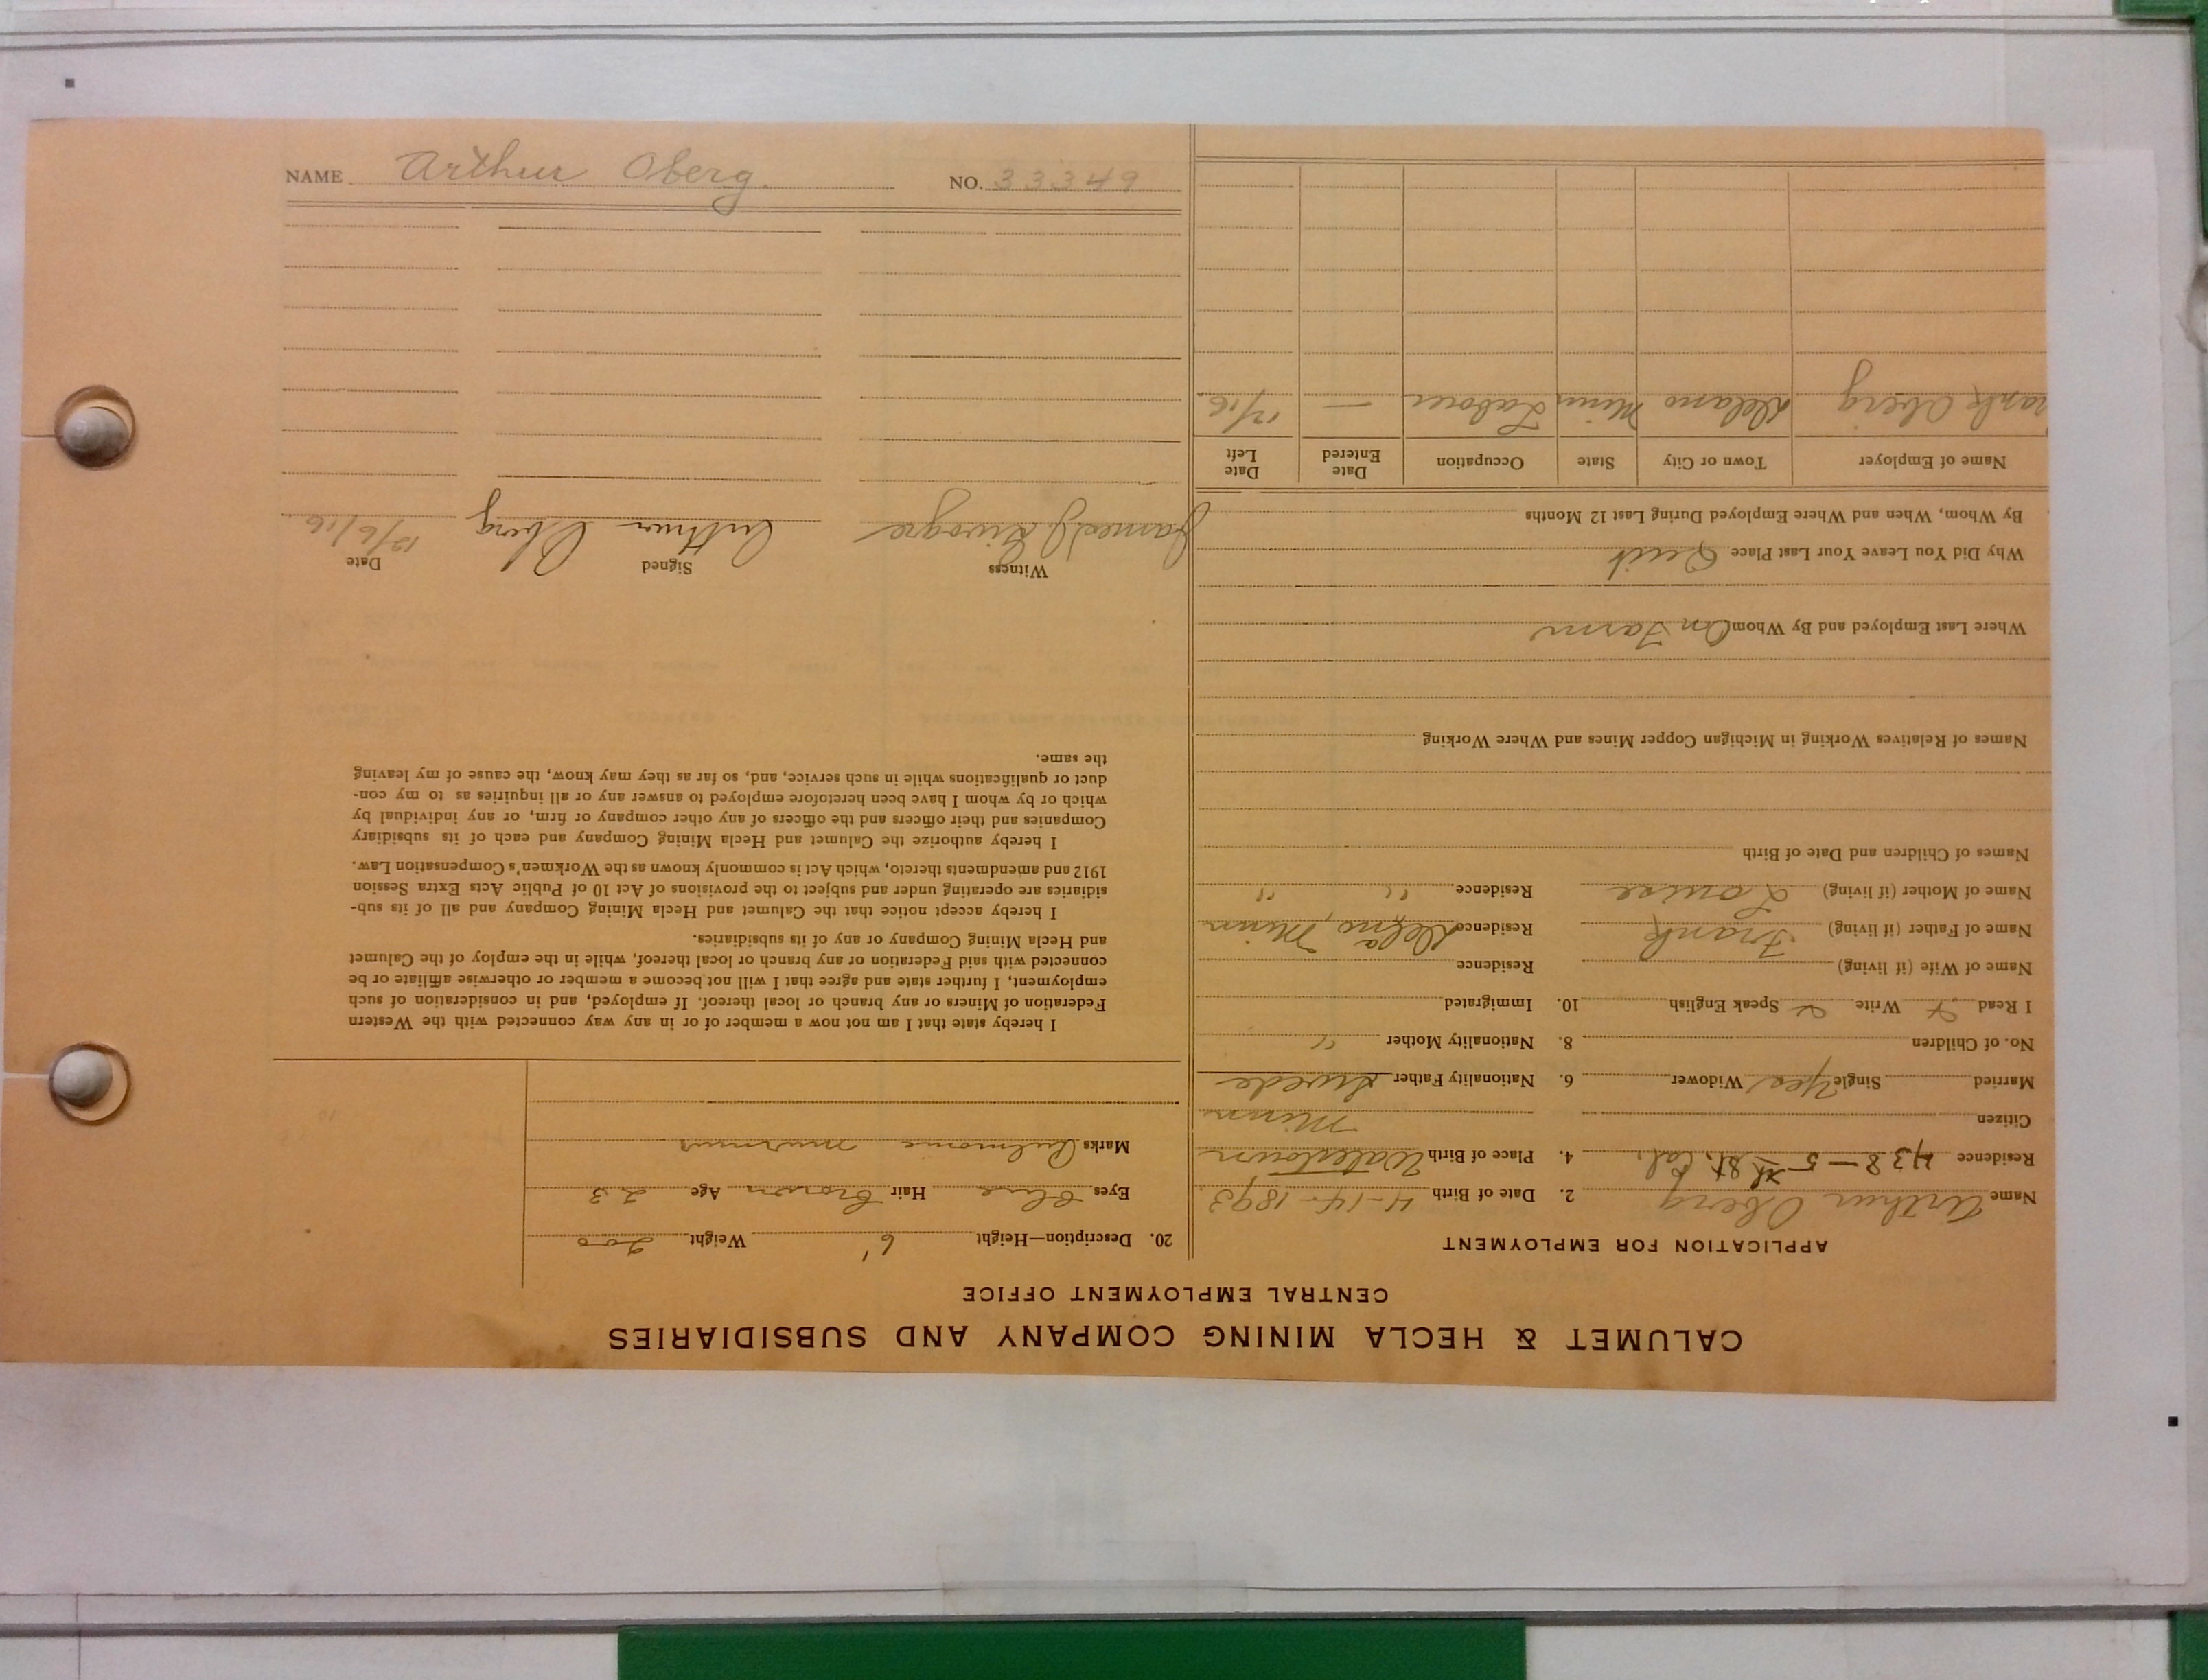 NAME Arthur Oberg. NO. 33349
CALUMET & HECLA MINING COMPANY AND SUBSIDIARIES
CENTRAL EMPLOYMENT OFFICE
APPLICATION FOR EMPLOYMENT
Name Arthur Oberg 2. Date of Birth 4-14-1893
Residence 438-5th St, Cal, 4. Place of Birth Watertown
Citizen Minn
Married Single Yes Widower 6. Nationality Father Swede
No. of Children 8. Nationality Mother "
I Read x Write x Speak English 10. Immigrated
Name of Wife (if living) Residence
Name of Father (if living) Frank Residence Delano, Minn
Name of Mother (if living) Louise Residence " "
Names of Children and Date of Birth
Names of Relatives Working in Michigan Copper Mines and Where Working
Where Last Employed and By Whom On Farm
Why Did You Leave Your Last Place Quit
By Whom, When and Where Employed During Last 12 Months
Name of Employer Town or City State Occupation Date Entered Date Left
rank Oberg Delano Minn Laborer — 12/16
20. Description—Height 6' Weight 200
Eyes Blue Hair Brown Age 23
Marks Pulmonic murmur
I hereby state that I am not now a member of or in any way connected with the Western
Federation of Miners or any branch or local thereof. If employed, and in consideration of such
employment, I further state and agree that I will not become a member or otherwise affiliate or be
connected with said Federation or any branch or local thereof, while in the employ of the Calumet
and Hecla Mining Company or any of its subsidiaries.
I hereby accept notice that the Calumet and Hecla Mining Company and all of its sub-
sidiaries are operating under and subject to the provisions of Act 10 of Public Acts Extra Session
1912 and amendments thereto, which Act is commonly known as the Workmen's Compensation Law.
I hereby authorize the Calumet and Hecla Mining Company and each of its subsidiary
Companies and their officers and the officers of any other company or firm, or any individual by
which or by whom I have been heretofore employed to answer any or all inquiries as to my con-
duct or qualifications while in such service, and, so far as they may know, the cause of my leaving
the same.
Witness Signed Date
James J Arthur Oberg 12/6/16